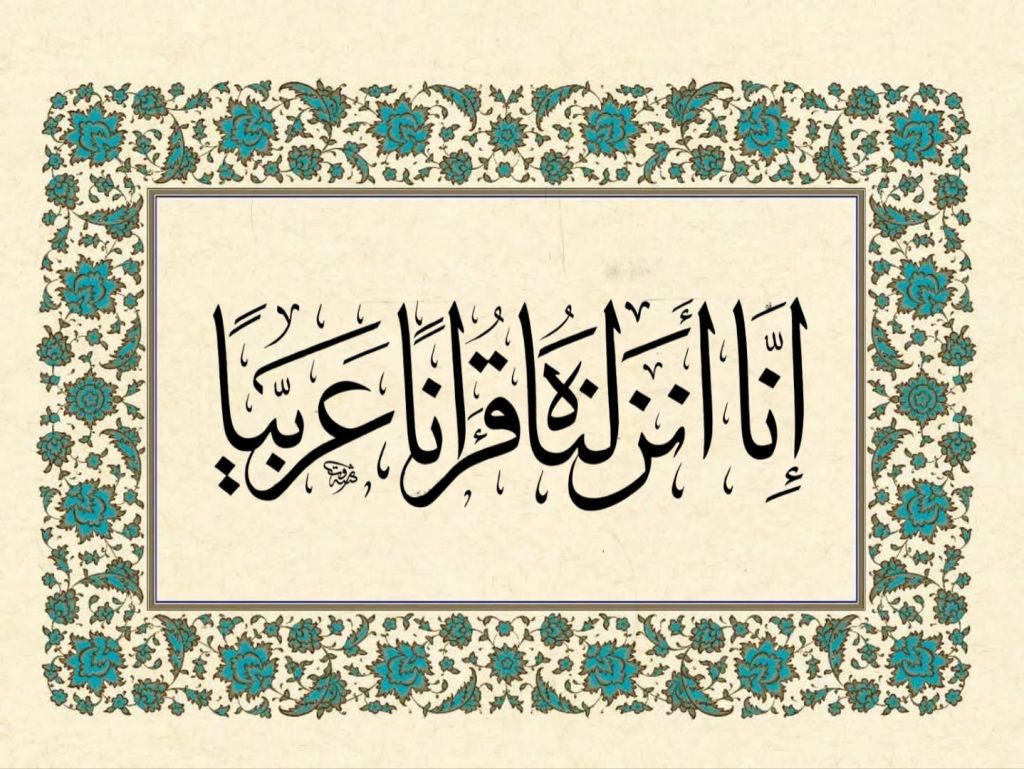 إِنَّا أَنزَلنَاهُ قُرءَانًا عَرَبِيًّا